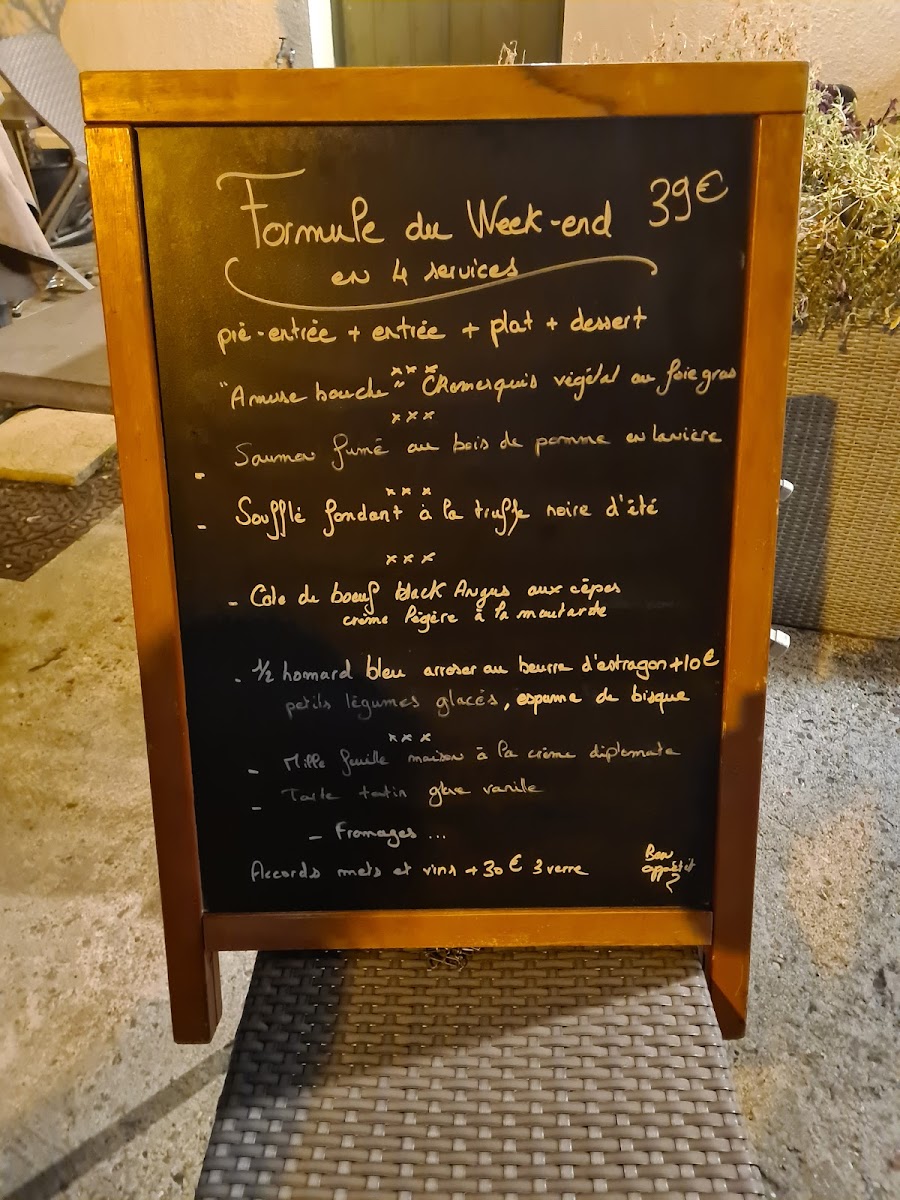 Formule du Week-end 39€
en 4 services
pré-entrée + entrée + plat + dessert
xxx
"Amuse bouche" Cromesquis végétal au foie gras
xxx
- Saumon fumé au bois de pomme en lanière
xxx
- Soufflé fondant à la truffe noire d'été
xxx
- Cote de boeuf black Angus aux cêpes
crème légère à la moutarde
- 1/2 homard bleu arroser au beurre d'estragon +10€
petits légumes glacés, espuma de bisque
xxx
- Mille feuille maison à la crème diplomate
- Tarte tatin glace vanille
- Fromages ...
Accords mets et vins +30€ 3 verre
Bon
appétit